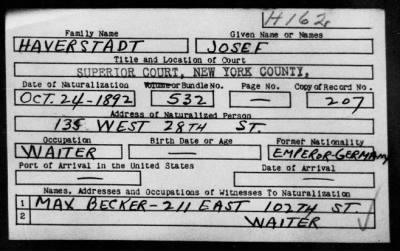 H162
Family Name Given Name or Names
HAVERSTADT JOSEF
Title and Location of Court
SUPERIOR COURT, NEW YORK COUNTY,
Date of Naturalization Volume or Bundle No. Page No. Copy of Record No.
OCT. 24-1892 532 — 207
Address of Naturalized Person
135 WEST 28TH ST.
Occupation Birth Date or Age Former Nationality
WAITER EMPEROR-GERMANY
Port of Arrival in the United States Date of Arrival
— —
Names, Addresses and Occupations of Witnesses To Naturalization
1 MAX BECKER-211 EAST 102TH ST
2 WAITER